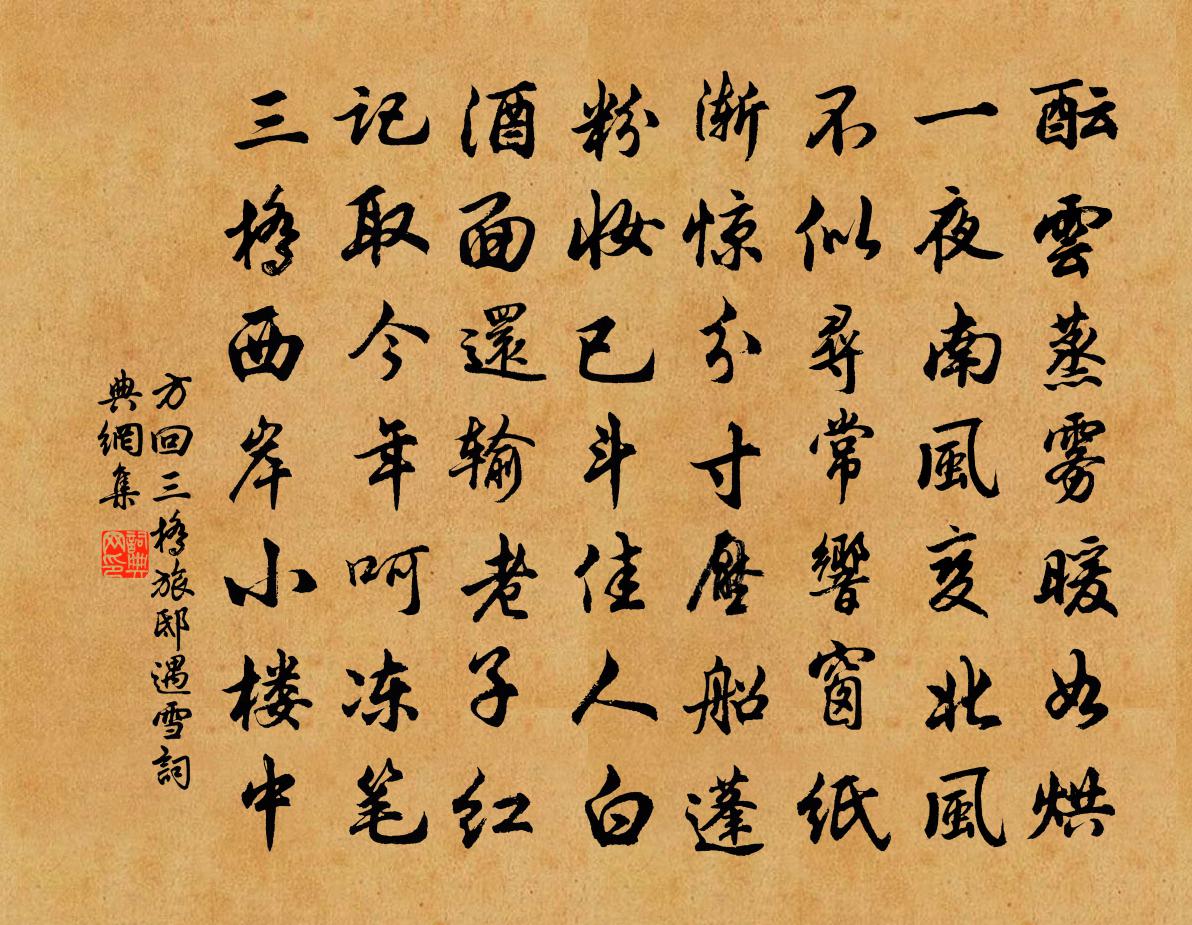 酝雲蒸雾暖如烘
一夜南風变北風
不似尋常響窗紙
渐惊分寸壓船蓬
粉妆已斗佳人白
酒面還输老子红
记取今年呵冻笔
三橋西岸小楼中
方回三橋旅邸遇雪詞
典網集
詞典
网印